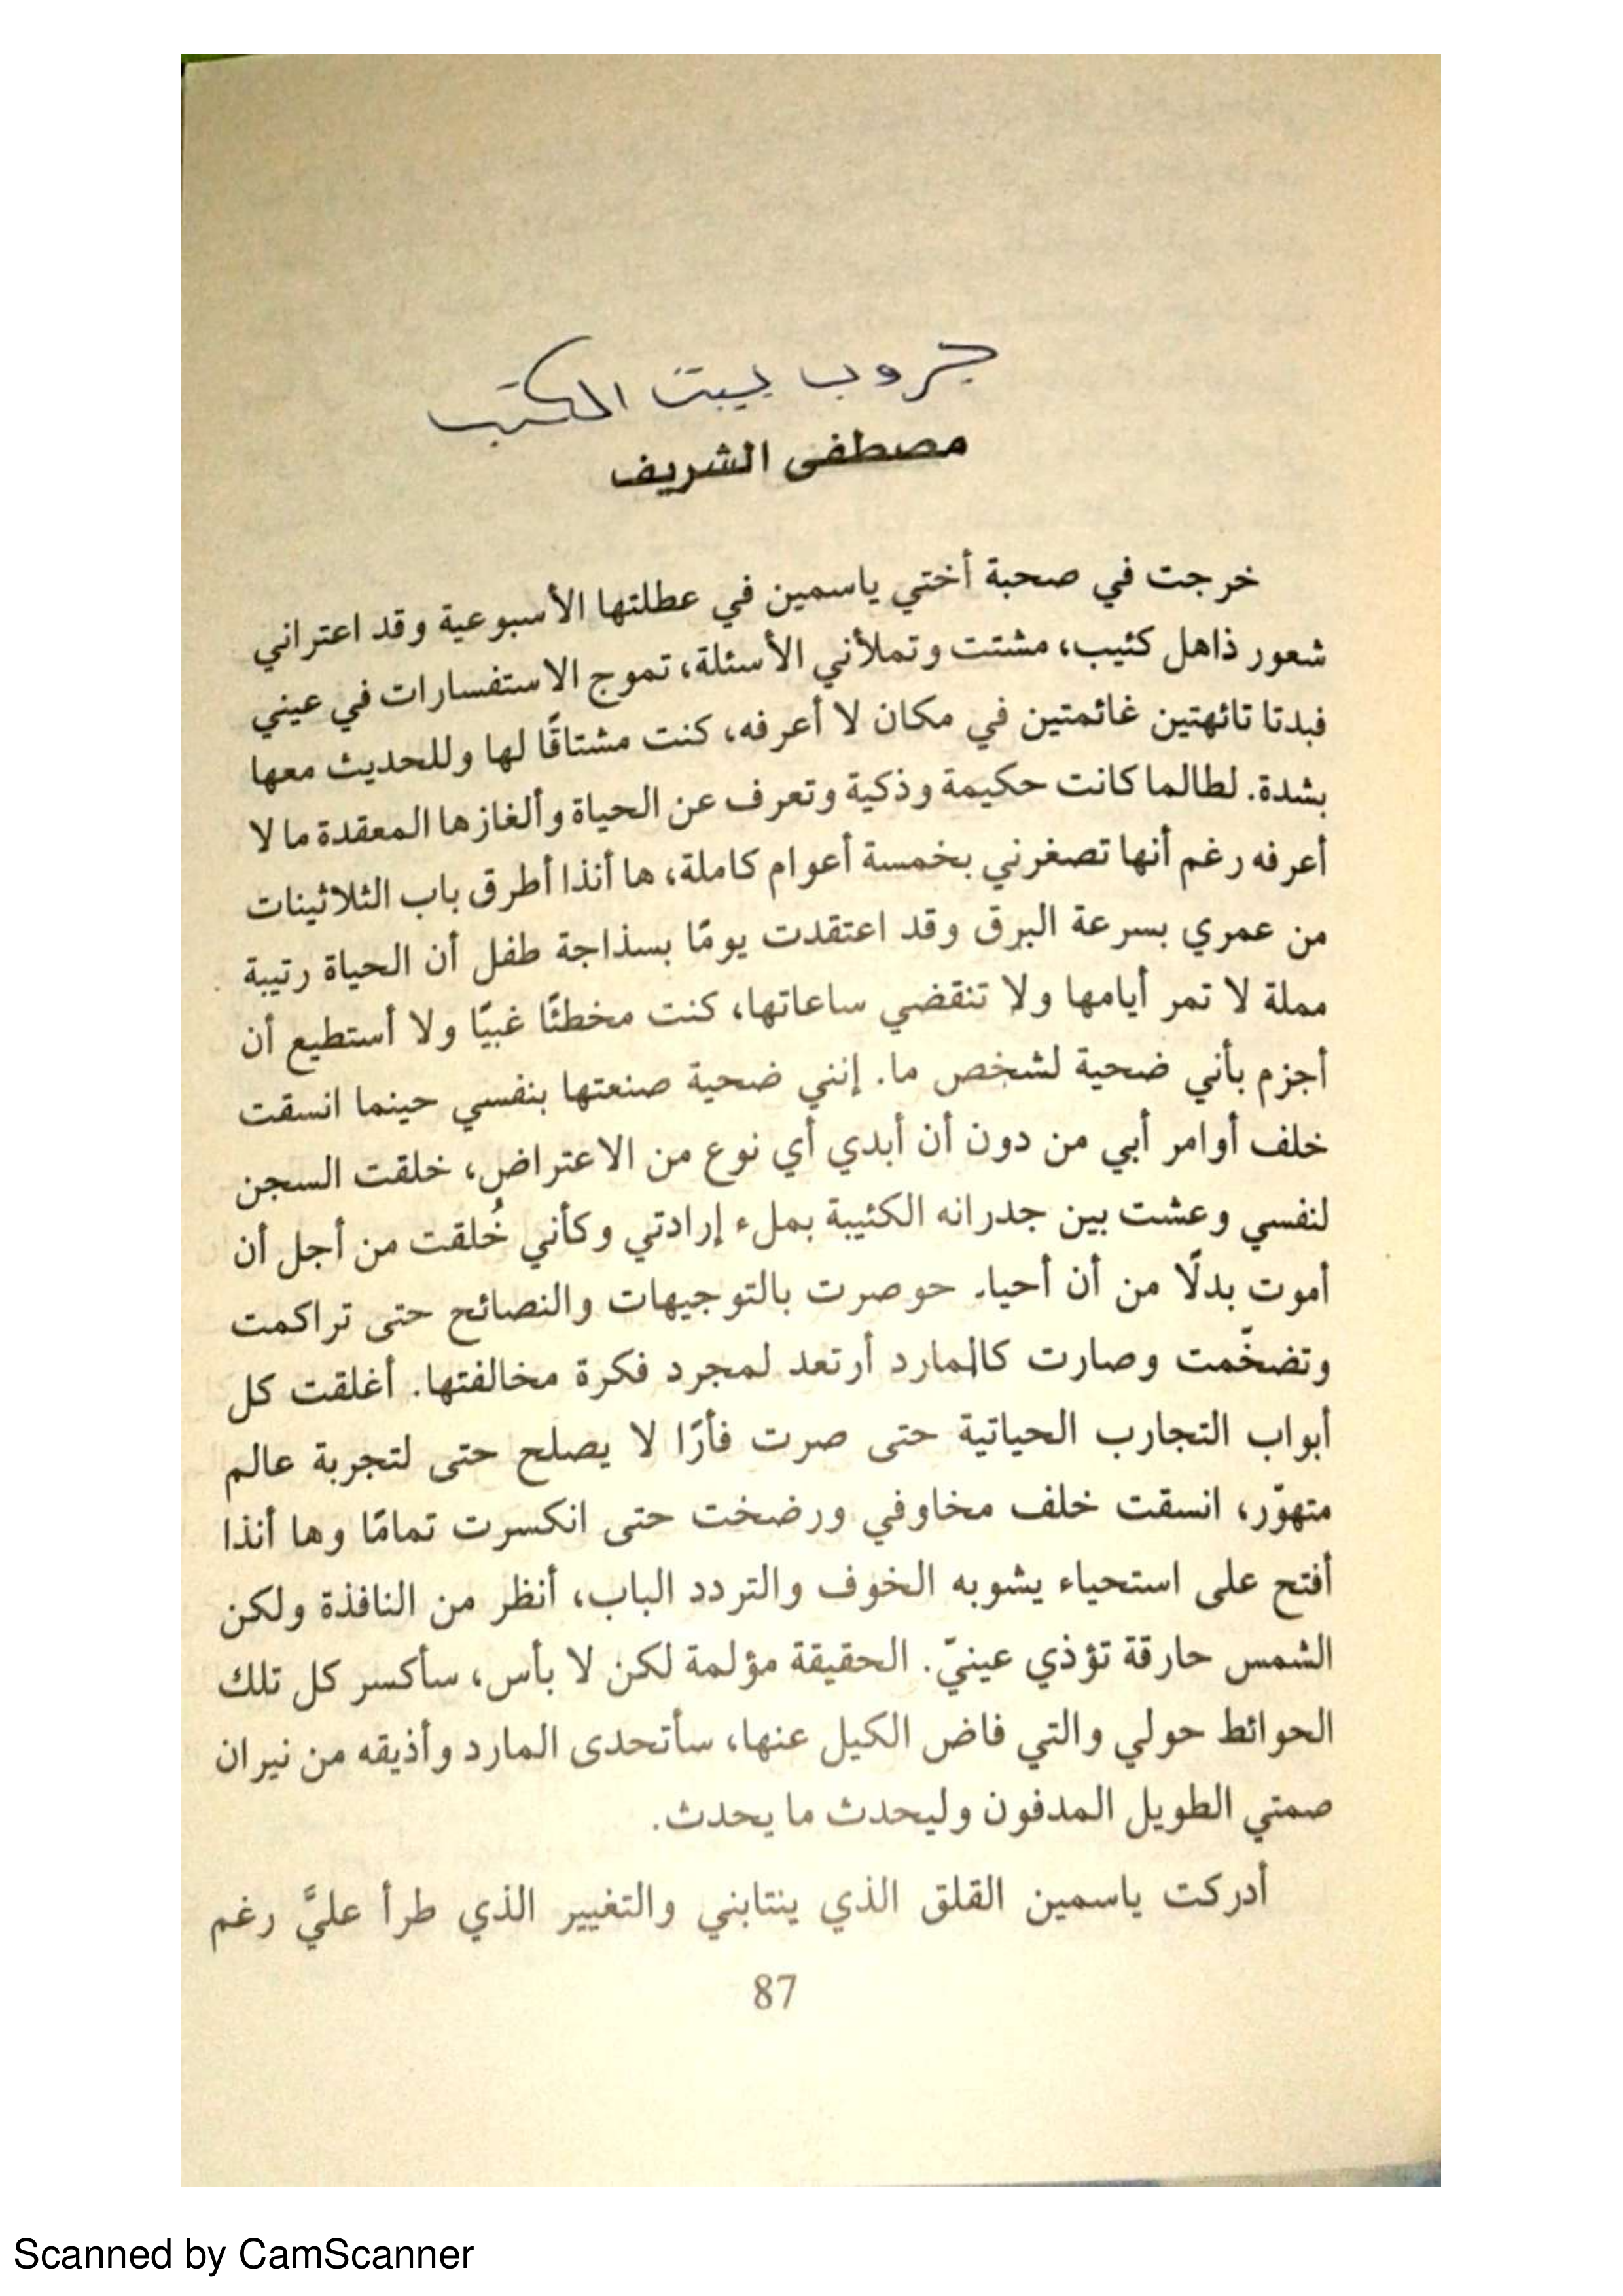 جروب بيت الكتب
مصطفى الشريف
خرجت في صحبة أختي ياسمين في عطلتها الأسبوعية وقد اعتراني
شعور ذاهل كئيب، مشتت وتملأني الأسئلة، تموج الاستفسارات في عيني
فبدتا تائهتين غائمتين في مكان لا أعرفه، كنت مشتاقًا لها وللحديث معها
بشدة. لطالما كانت حكيمة وذكية وتعرف عن الحياة وألغازها المعقدة ما لا
أعرفه رغم أنها تصغرني بخمسة أعوام كاملة، ها أنذا أطرق باب الثلاثينات
من عمري بسرعة البرق وقد اعتقدت يومًا بسذاجة طفل أن الحياة رتيبة
مملة لا تمر أيامها ولا تنقضي ساعاتها، كنت مخطئًا غبيًا ولا أستطيع أن
أجزم بأني ضحية لشخص ما. إنني ضحية صنعتها بنفسي حينما انسقت
خلف أوامر أبي من دون أن أبدي أي نوع من الاعتراض، خلقت السجن
لنفسي وعشت بين جدرانه الكئيبة بملء إرادتي وكأني خُلقت من أجل أن
أموت بدلًا من أن أحيا. حوصرت بالتوجيهات والنصائح حتى تراكمت
وتضخّمت وصارت كالمارد أرتعد لمجرد فكرة مخالفتها. أغلقت كل
أبواب التجارب الحياتية حتى صرت فأرًا لا يصلح حتى لتجربة عالم
متهوّر، انسقت خلف مخاوفي ورضخت حتى انكسرت تمامًا وها أنذا
أفتح على استحياء يشوبه الخوف والتردد الباب، أنظر من النافذة ولكن
الشمس حارقة تؤذي عينيّ. الحقيقة مؤلمة لكن لا بأس، سأكسر كل تلك
الحوائط حولي والتي فاض الكيل عنها، سأتحدى المارد وأذيقه من نيران
صمتي الطويل المدفون وليحدث ما يحدث.
أدركت ياسمين القلق الذي ينتابني والتغيير الذي طرأ عليَّ رغم
87
Scanned by CamScanner